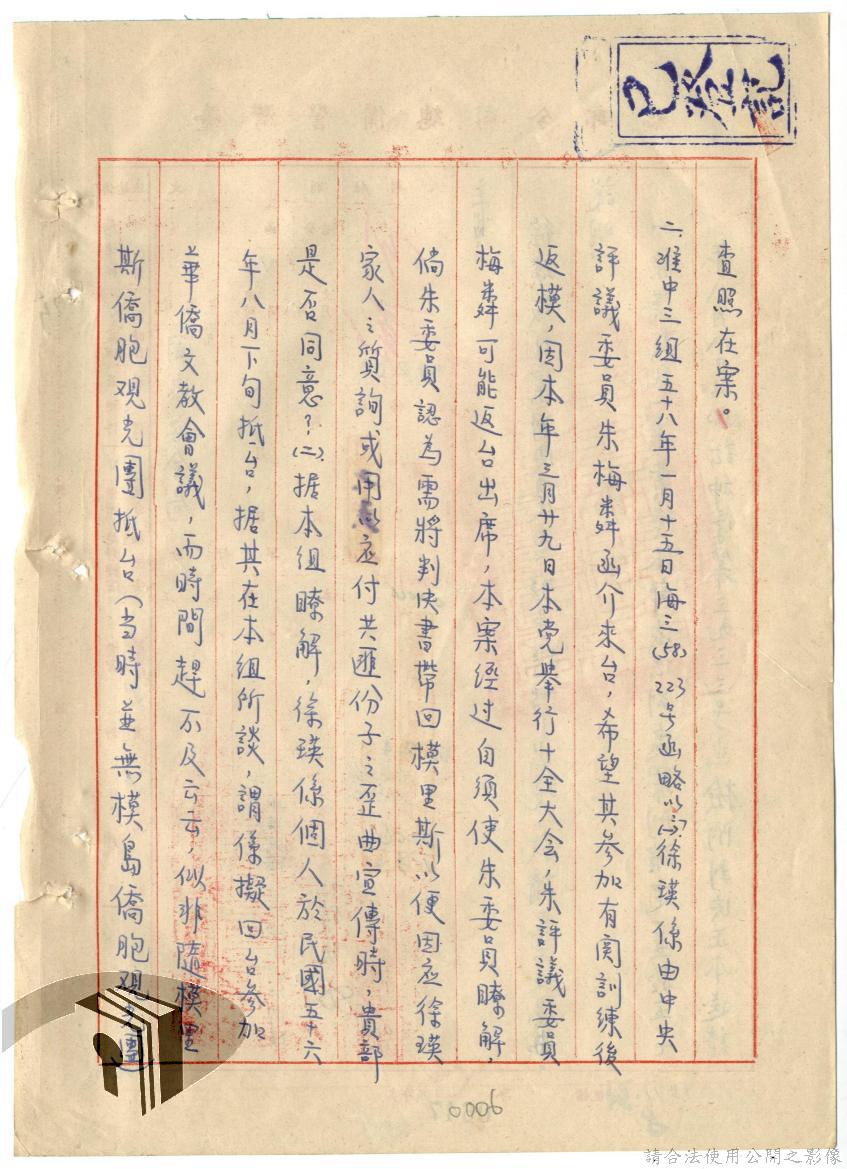 已登記
查照在案。
二、准中三組五十八年一月十五日海三(58)223号函略以:㈠徐瑛係由中央
評議委員朱梅麟函介來台,希望其參加有関訓練後
返模,因本年三月廿九日本党舉行十全大会,朱評議委員
梅麟可能返台出席,本案経过自須使朱委員瞭解,
倘朱委員認為需將判决書帶回模里斯以便因应徐瑛
家人之質詢或用以应付共匪份子之歪曲宣傳時,貴部
是否同意?㈡据本組瞭解,徐瑛係個人於民國五十六
年八月下旬抵台,据其在本組所談,謂係擬回台參加
華僑文教會議,而時間趕不及云云,似非隨模里
斯僑胞观光團抵台(当時並無模島僑胞观光團)
0006
請合法使用公開之影像